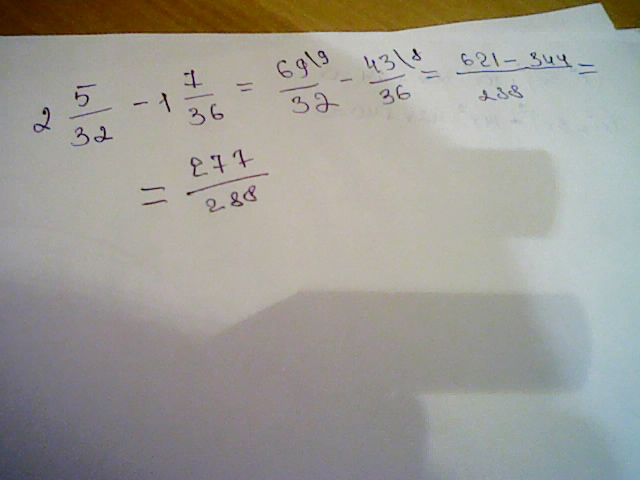 2 5/32 - 1 7/36 = 69\9/32 - 43\8/36 = 621 - 344/288 =
= 277/288